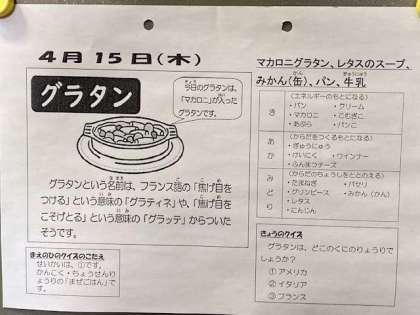 4月15日(木)
グラタン
きょう
今日のグラタンは、
「マカロニ」が入った
グラタンです。
グラタンという名前は、フランス語の「焦げ目を
つける」という意味の「グラティネ」や、「焦げ目を
こそげとる」という意味の「グラッテ」からついた
そうです。
まえのひのクイズのこたえ
せいかいは、①です。
かんこく・ちょうせんり
ょうりの「まぜごはん」で
す。
マカロニグラタン、レタスのスープ、
みかん(缶)、パン、牛乳
き
(エネルギーのもとになる)
・パン ・クリーム
・マカロニ ・こむぎこ
・あぶら ・パンこ
あか
(からだをつくるもとになる)
・ぎゅうにゅう
・けいにく ・ウインナー
・ふんまつチーズ
みどり
(からだのちょうしをととのえる)
・たまねぎ ・パセリ
・グリンピース ・みかん(かん)
・レタス
・にんじん
きょうのクイズ
グラタンは、どこのくにのりょうりで
しょうか?
① アメリカ
② イタリア
③ フランス